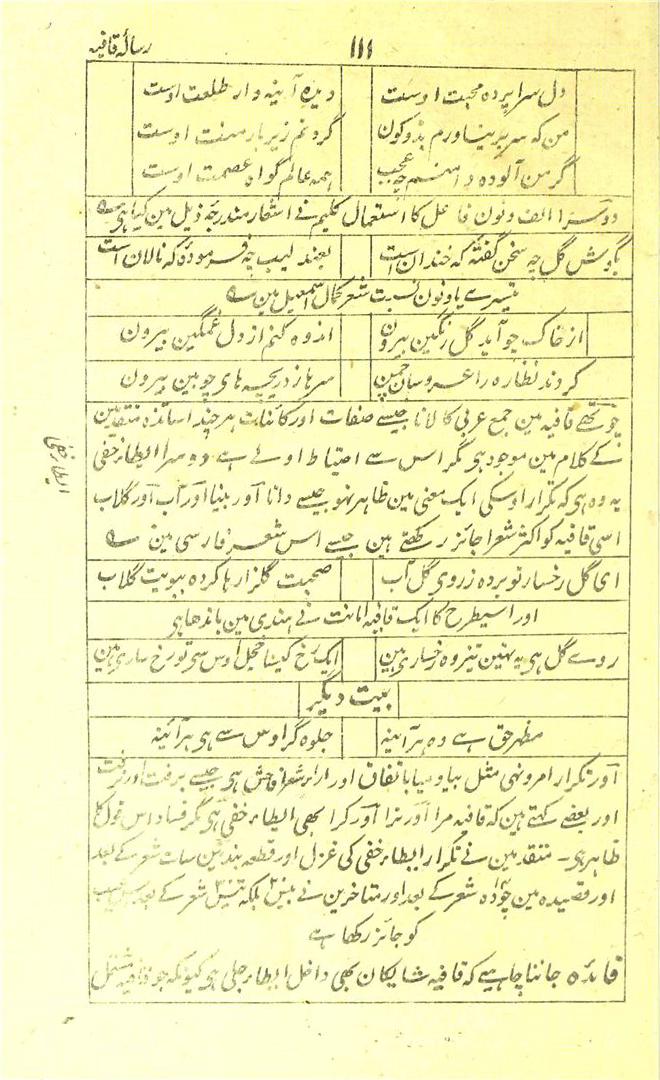 رسالہ قافیہ
۱۱۱
دل سراپردہ محبت اوست
دیدہ آئینہ دار طلعت اوست
من کہ سر بر نیاورم بدو کون
گردنم زیر بار منت اوست
گر من آلودہ دامنم چہ عجب
ہمہ عالم گواہ عصمت اوست
دوسرا الف و نون فاعل کا استعمال کلیم نے اشعار مندرجہ ذیل مین کیا ہی
بگوش گل چہ سخن گفتہ کہ خندان است
بعندلیب چہ فرمودہ کہ نالان است
تیسرے یا و نون نسبت شعر کمال اسمعیل مین
از خاک چو آید گل رنگین بیرون
اندوہ کنم از دل غمگین بیرون
کردند نظارہ را عروسان چمن
سرہا ز دریچہ ہای چوبین بیرون
چوتھے قافیہ مین جمع عربی کا لانا جیسے صفات اور کائنات ہر چند اساتذہ متقدمین
کے کلام مین موجود ہی مگر اس سے احتیاط اولے ہے دوسرا ایطاء خفی
یہ وہ ہی کہ تکرار اوسکی ایک معنی مین ظاہر نہو جیسے دانا اور بینا اور آب اور گلاب
اسی قافیہ کو اکثر شعرا جائز رکھتے ہین جیسے اس شعر فارسی مین
ایطاء خفی
ای گل رخسار تو بردہ ز روی گل آب
صحبت گل را رہا کردہ ببویت گلاب
اور اسیطرح کا ایک قافیہ امانت نے ہندی مین باندھا ہی
روے گل ہی یہ نہین تیز وہ رخساری ہین
ایک رخ کیسا خجل اوس سی تو رخ ساری ہین
بیت دیگر
مظہر حق ہے وہ ہر آئینہ
جلوہ گر اوس سے ہی ہر آئینہ
اور تکرار امر و نہی مثل بیا و میا باتفاق اور اراء شعرا فاحش ہی جیسے برفت اور نرفت
اور بعضے کہتے ہین کہ قافیہ مرا اور ترا اور کرا بھی ایطاء خفی ہی مگر فساد اس قول کا
ظاہر ہی۔ متقدمین نے تکرار ایطاء خفی کی غزل اور قطعہ بند مین سات شعر کے بعد
اور قصیدہ مین چودہ شعر کے بعد اور متاخرین نے بیس بلکہ تیس شعر کے بعد
کو جائز رکھا ہے
فائدہ جاننا چاہیے کہ قافیہ شایگان بھی داخل ایطاء جلی ہی کیونکہ جو قافیہ مشتمل